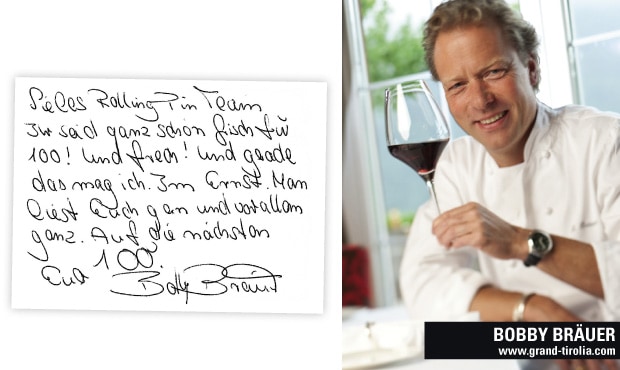 Liebes Rolling Pin Team
Ihr seid ganz schön frisch für
100! Und frech! Und gerade
das mag ich. Im Ernst. Man
liest Euch gern und vor allem
ganz. Auf die nächsten
100
Euer Bobby Bräuer
BOBBY BRÄUER
www.grand-tirolia.com